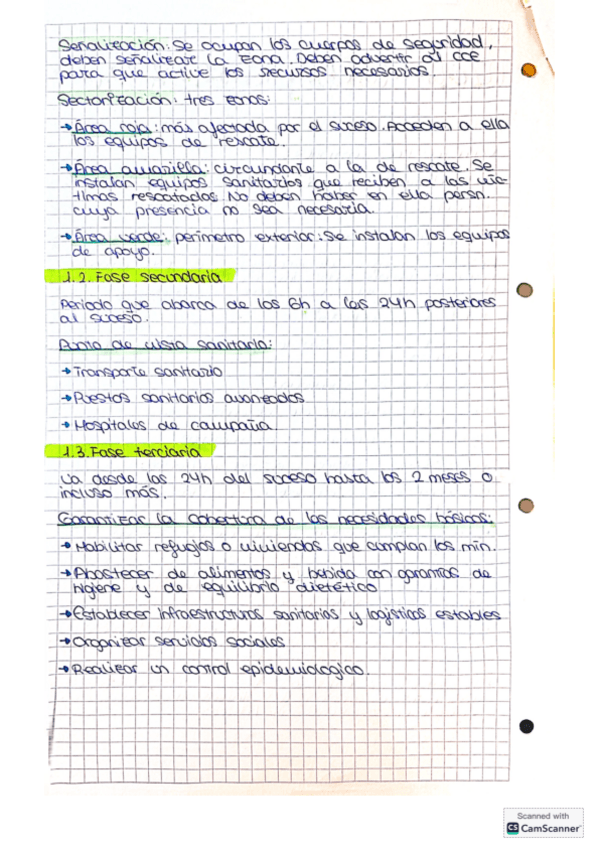 Señalización: Se ocupan los cuerpos de seguridad,
deben señalizar la zona. Deben advertir al CCE
para que active los recursos necesarios.
Sectorización: tres zonas:
→ Área roja: más afectada por el suceso. Acceden a ella
los equipos de rescate.
→ Área amarilla: circundante a la de rescate. Se
instalan equipos sanitarios que reciben a las víc-
timas rescatadas. No deben haber en ella persn.
cuya presencia no sea necesaria.
→ Área verde: perímetro exterior: Se instalan los equipos
de apoyo.
1.2. Fase secundaria
Periodo que abarca de las 6h a las 24h posteriores
al suceso.
Punto de vista sanitario:
→ Transporte sanitario
→ Puestos sanitarios avanzados
→ Hospitales de campaña
1.3. Fase terciaria
Va desde las 24h del suceso hasta los 2 meses o
incluso más.
Garantizar la cobertura de las necesidades básicas:
→ Habilitar refugios o viviendas que cumplan los mín.
→ Abastecer de alimentos y bebida con garantías de
higiene y de equilibrio dietético
→ Establecer infraestructuras sanitarias y logísticas estables
→ Organizar servicios sociales
→ Realizar un control epidemiologico.
Scanned with
CS CamScanner